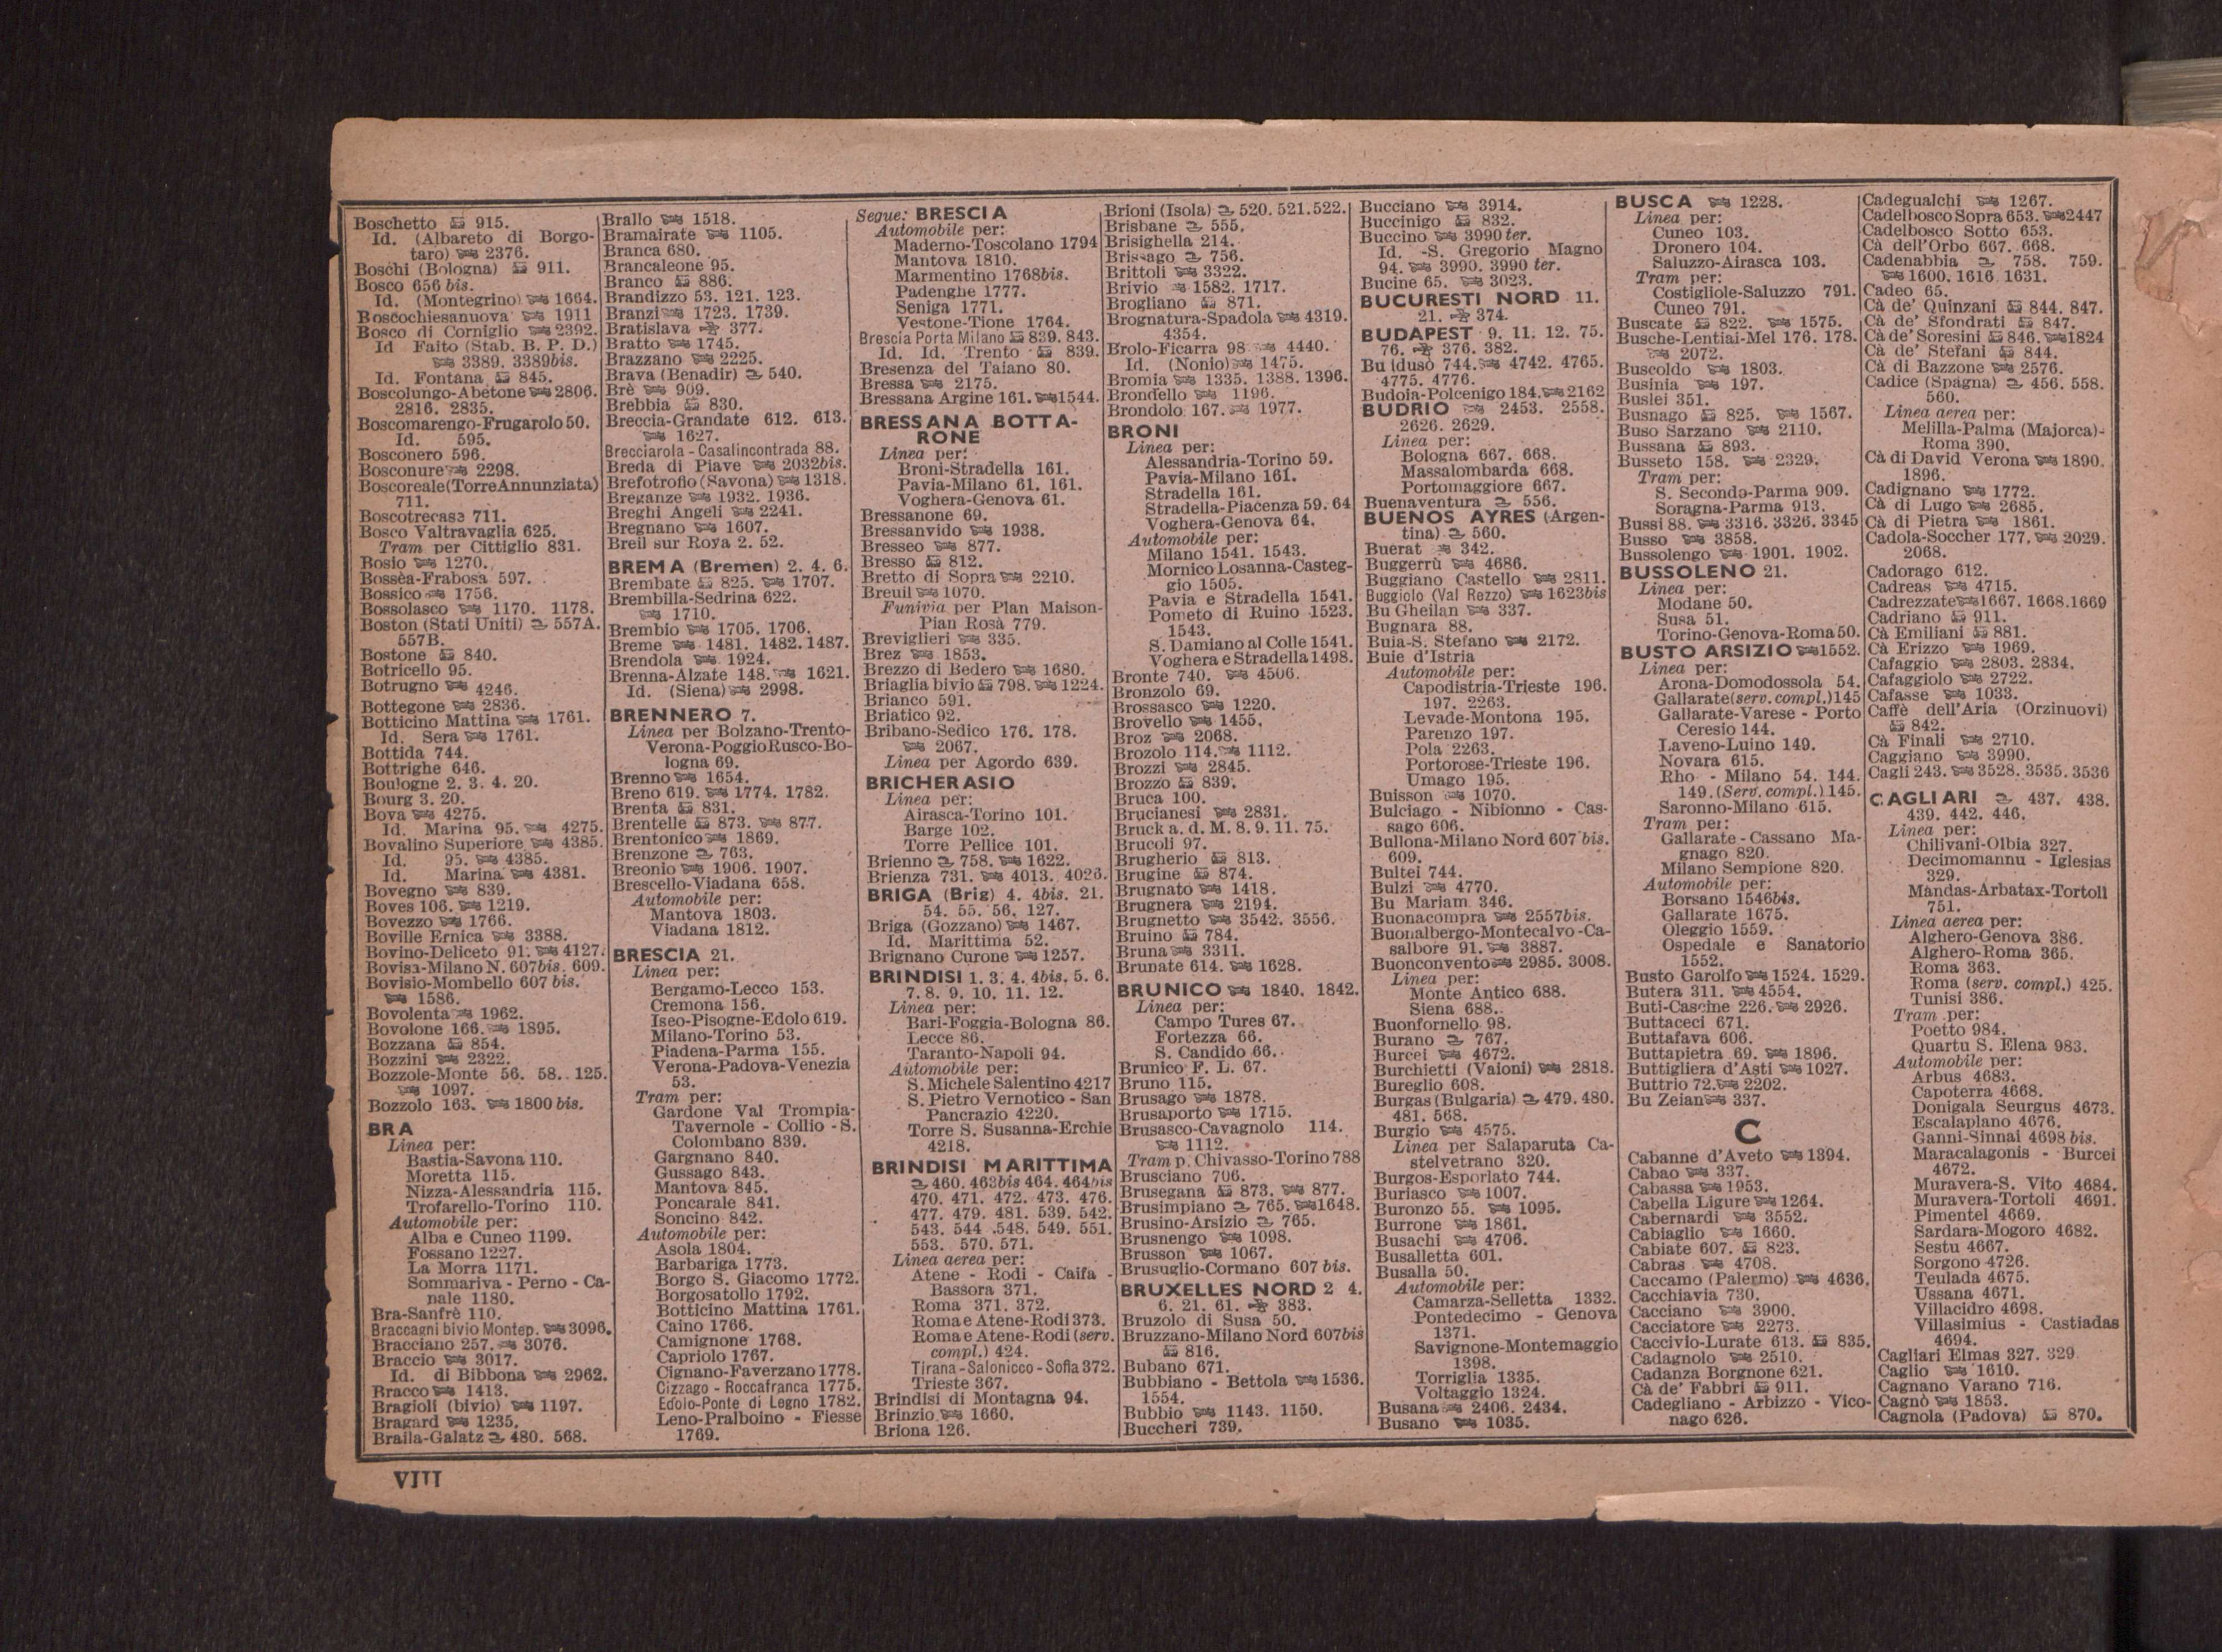 Boschetto 915.
Id. (Albareto di Borgo-
taro) 2376.
Boschi (Bologna) 911.
Bosco 656 bis.
Id. (Montegrino) 1664.
Boscochiesanuova 1911
Bosco di Corniglio 2392.
Id Faito (Stab. B. P. D.)
3389. 3389bis.
Id. Fontana 845.
Boscolungo-Abetone 2806.
2816. 2835.
Boscomarengo-Frugarolo 50.
Id. 595.
Bosconero 596.
Bosconure 2298.
Boscoreale (Torre Annunziata)
711.
Boscotrecase 711.
Bosco Valtravaglia 625.
Tram per Cittiglio 831.
Bosio 1270.
Bossèa-Frabosa 597.
Bossico 1756.
Bossolasco 1170. 1178.
Boston (Stati Uniti) 557A.
557B.
Bostone 840.
Botricello 95.
Botrugno 4246.
Bottegone 2836.
Botticino Mattina 1761.
Id. Sera 1761.
Bottida 744.
Bottrighe 646.
Boulogne 2. 3. 4. 20.
Bourg 3. 20.
Bova 4275.
Id. Marina 95. 4275.
Bovalino Superiore 4385.
Id. 95. 4385.
Id. Marina 4381.
Bovegno 839.
Boves 106. 1219.
Bovezzo 1766.
Boville Ernica 3388.
Bovino-Deliceto 91. 4127.
Bovisa-Milano N. 607bis. 609.
Bovisio-Mombello 607 bis.
1586.
Bovolenta 1962.
Bovolone 166. 1895.
Bozzana 854.
Bozzini 2322.
Bozzole-Monte 56. 58. 125.
1097.
Bozzolo 163. 1800 bis.
BRA
Linea per:
Bastia-Savona 110.
Moretta 115.
Nizza-Alessandria 115.
Trofarello-Torino 110.
Automobile per:
Alba e Cuneo 1199.
Fossano 1227.
La Morra 1171.
Sommariva - Perno - Ca-
nale 1180.
Bra-Sanfrè 110.
Braccagni bivio Montep. 3096.
Bracciano 257. 3076.
Braccio 3017.
Id. di Bibbona 2962.
Bracco 1413.
Bragioli (bivio) 1197.
Bragard 1235.
Braila-Galatz 480. 568.
Brallo 1518.
Bramairate 1105.
Branca 680.
Brancaleone 95.
Branco 886.
Brandizzo 53. 121. 123.
Branzi 1723. 1739.
Bratislava 377.
Bratto 1745.
Brazzano 2225.
Brava (Benadir) 540.
Brè 909.
Brebbia 830.
Breccia-Grandate 612. 613.
1627.
Brecciarola - Casalincontrada 88.
Breda di Piave 2032bis.
Brefotrofio (Savona) 1318.
Breganze 1932. 1936.
Breghi Angeli 2241.
Bregnano 1607.
Breil sur Roya 2. 52.
BREMA (Bremen) 2. 4. 6.
Brembate 825. 1707.
Brembilla-Sedrina 622.
1710.
Brembio 1705. 1706.
Breme 1481. 1482. 1487.
Brendola 1924.
Brenna-Alzate 148. 1621.
Id. (Siena) 2998.
BRENNERO 7.
Linea per Bolzano-Trento-
Verona-Poggio Rusco-Bo-
logna 69.
Brenno 1654.
Breno 619. 1774. 1782.
Brenta 831.
Brentelle 873. 877.
Brentonico 1869.
Brenzone 763.
Breonio 1906. 1907.
Brescello-Viadana 658.
Automobile per:
Mantova 1803.
Viadana 1812.
BRESCIA 21.
Linea per:
Bergamo-Lecco 153.
Cremona 156.
Iseo-Pisogne-Edolo 619.
Milano-Torino 53.
Piadena-Parma 155.
Verona-Padova-Venezia
53.
Tram per:
Gardone Val Trompia-
Tavernole - Collio - S.
Colombano 839.
Gargnano 840.
Gussago 843.
Mantova 845.
Poncarale 841.
Soncino 842.
Automobile per:
Asola 1804.
Barbariga 1773.
Borgo S. Giacomo 1772.
Borgosatollo 1792.
Botticino Mattina 1761.
Caino 1766.
Camignone 1768.
Capriolo 1767.
Cignano-Faverzano 1778.
Cizzago - Roccafranca 1775.
Edolo-Ponte di Legno 1782.
Leno-Pralboino - Fiesse
1769.
Segue: BRESCIA
Automobile per:
Maderno-Toscolano 1794
Mantova 1810.
Marmentino 1768bis.
Padenghe 1777.
Seniga 1771.
Vestone-Tione 1764.
Brescia Porta Milano 839. 843.
Id. Id. Trento 839.
Bresenza del Taiano 80.
Bressa 2175.
Bressana Argine 161. 1544.
BRESSANA BOTTA-
RONE
Linea per:
Broni-Stradella 161.
Pavia-Milano 61. 161.
Voghera-Genova 61.
Bressanone 69.
Bressanvido 1938.
Bresseo 877.
Bresso 812.
Bretto di Sopra 2210.
Breuil 1070.
Funivia per Plan Maison-
Pian Rosà 779.
Breviglieri 335.
Brez 1853.
Brezzo di Bedero 1680.
Briaglia bivio 798. 1224.
Brianco 591.
Briatico 92.
Bribano-Sedico 176. 178.
2067.
Linea per Agordo 639.
BRICHERASIO
Linea per:
Airasca-Torino 101.
Barge 102.
Torre Pellice 101.
Brienno 758. 1622.
Brienza 731. 4013. 4026.
BRIGA (Brig) 4. 4bis. 21.
54. 55. 56. 127.
Briga (Gozzano) 1467.
Id. Marittima 52.
Brignano Curone 1257.
BRINDISI 1. 3. 4. 4bis. 5. 6.
7. 8. 9. 10. 11. 12.
Linea per:
Bari-Foggia-Bologna 86.
Lecce 86.
Taranto-Napoli 94.
Automobile per:
S. Michele Salentino 4217
S. Pietro Vernotico - San
Pancrazio 4220.
Torre S. Susanna-Erchie
4218.
BRINDISI MARITTIMA
460. 463bis 464. 464bis
470. 471. 472. 473. 476.
477. 479. 481. 539. 542.
543. 544 .548. 549. 551.
553. 570. 571.
Linea aerea per:
Atene - Rodi - Caifa -
Bassora 371.
Roma 371. 372.
Roma e Atene-Rodi 373.
Roma e Atene-Rodi (serv.
compl.) 424.
Tirana - Salonicco - Sofia 372.
Trieste 367.
Brindisi di Montagna 94.
Brinzio 1660.
Briona 126.
Brioni (Isola) 520. 521. 522.
Brisbane 555.
Brisighella 214.
Brissago 756.
Brittoli 3322.
Brivio 1582. 1717.
Brogliano 871.
Brognatura-Spadola 4319.
4354.
Brolo-Ficarra 98. 4440.
Id. (Nonio) 1475.
Bromia 1335. 1388. 1396.
Brondello 1196.
Brondolo 167. 1977.
BRONI
Linea per:
Alessandria-Torino 59.
Pavia-Milano 161.
Stradella 161.
Stradella-Piacenza 59. 64
Voghera-Genova 64.
Automobile per:
Milano 1541. 1543.
Mornico Losanna-Casteg-
gio 1505.
Pavia e Stradella 1541.
Pometo di Ruino 1523.
1543.
S. Damiano al Colle 1541.
Voghera e Stradella 1498.
Bronte 740. 4506.
Bronzolo 69.
Brossasco 1220.
Brovello 1455.
Broz 2068.
Brozolo 114. 1112.
Brozzi 2845.
Brozzo 839.
Bruca 100.
Brucianesi 2831.
Bruck a. d. M. 8. 9. 11. 75.
Brucoli 97.
Brugherio 813.
Brugine 874.
Brugnato 1418.
Brugnera 2194.
Brugnetto 3542. 3556.
Bruino 784.
Bruna 3311.
Brunate 614. 1628.
BRUNICO 1840. 1842.
Linea per:
Campo Tures 67.
Fortezza 66.
S. Candido 66.
Brunico F. L. 67.
Bruno 115.
Brusago 1878.
Brusaporto 1715.
Brusasco-Cavagnolo 114.
1112.
Tram p. Chivasso-Torino 788
Brusciano 706.
Brusegana 873. 877.
Brusimpiano 765. 1648.
Brusino-Arsizio 765.
Brusnengo 1098.
Brusson 1067.
Brusuglio-Cormano 607 bis.
BRUXELLES NORD 2 4.
6. 21. 61. 383.
Bruzolo di Susa 50.
Bruzzano-Milano Nord 607bis
816.
Bubano 671.
Bubbiano - Bettola 1536.
1554.
Bubbio 1143. 1150.
Buccheri 739.
Bucciano 3914.
Buccinigo 832.
Buccino 3990 ter.
Id. -S. Gregorio Magno
94. 3990. 3990 ter.
Bucine 65. 3023.
BUCURESTI NORD 11.
21. 374.
BUDAPEST 9. 11. 12. 75.
76. 376. 382.
Bu iduso 744. 4742. 4765.
4775. 4776.
Budoia-Polcenigo 184. 2162
BUDRIO 2453. 2558.
2626. 2629.
Linea per:
Bologna 667. 668.
Massalombarda 668.
Portomaggiore 667.
Buenaventura 556.
BUENOS AYRES (Argen-
tina) 560.
Buerat 342.
Buggerrù 4686.
Buggiano Castello 2811.
Buggiolo (Val Rezzo) 1623bis
Bu Gheilan 337.
Bugnara 88.
Buia-S. Stefano 2172.
Buie d'Istria
Automobile per:
Capodistria-Trieste 196.
197. 2263.
Levade-Montona 195.
Parenzo 197.
Pola 2263.
Portorose-Trieste 196.
Umago 195.
Buisson 1070.
Bulciago - Nibionno - Cas-
sago 606.
Bullona-Milano Nord 607 bis.
609.
Bultei 744.
Bulzi 4770.
Bu Mariam 346.
Buonacompra 2557bis.
Buonalbergo-Montecalvo-Ca-
salbore 91. 3887.
Buonconvento 2985. 3008.
Linea per:
Monte Antico 688.
Siena 688.
Buonfornello 98.
Burano 767.
Burcei 4672.
Burchietti (Vaioni) 2818.
Bureglio 608.
Burgas (Bulgaria) 479. 480.
481. 568.
Burgio 4575.
Linea per Salaparuta Ca-
stelvetrano 320.
Burgos-Esporlato 744.
Buriasco 1007.
Buronzo 55. 1095.
Burrone 1861.
Busachi 4706.
Busalletta 601.
Busalla 50.
Automobile per:
Camarza-Selletta 1332.
Pontedecimo - Genova
1371.
Savignone-Montemaggio
1398.
Torriglia 1335.
Voltaggio 1324.
Busana 2406. 2434.
Busano 1035.
BUSCA 1228.
Linea per:
Cuneo 103.
Dronero 104.
Saluzzo-Airasca 103.
Tram per:
Costigliole-Saluzzo 791.
Cuneo 791.
Buscate 822. 1575.
Busche-Lentiai-Mel 176. 178.
2072.
Buscoldo 1803.
Businia 197.
Buslei 351.
Busnago 825. 1567.
Buso Sarzano 2110.
Bussana 893.
Busseto 158. 2329.
Tram per:
S. Secondo-Parma 909.
Soragna-Parma 913.
Bussi 88. 3316. 3326. 3345
Busso 3858.
Bussolengo 1901. 1902.
BUSSOLENO 21.
Linea per:
Modane 50.
Susa 51.
Torino-Genova-Roma 50.
BUSTO ARSIZIO 1552.
Linea per:
Arona-Domodossola 54.
Gallarate (serv. compl.) 145
Gallarate-Varese - Porto
Ceresio 144.
Laveno-Luino 149.
Novara 615.
Rho - Milano 54. 144.
149. (Serv. compl.) 145.
Saronno-Milano 615.
Tram per:
Gallarate - Cassano Ma-
gnago 820.
Milano Sempione 820.
Automobile per:
Borsano 1546bis.
Gallarate 1675.
Oleggio 1559.
Ospedale e Sanatorio
1552.
Busto Garolfo 1524. 1529.
Butera 311. 4554.
Buti-Cascine 226. 2926.
Buttaceci 671.
Buttafava 606.
Buttapietra 69. 1896.
Buttigliera d'Asti 1027.
Buttrio 72. 2202.
Bu Zeian 337.
C
Cabanne d'Aveto 1394.
Cabao 337.
Cabassa 1953.
Cabella Ligure 1264.
Cabernardi 3552.
Cabiaglio 1660.
Cabiate 607. 823.
Cabras 4708.
Caccamo (Palermo) 4636.
Cacchiavia 730.
Cacciano 3900.
Cacciatore 2273.
Caccivio-Lurate 613. 835.
Cadagnolo 2510.
Cadanza Borgnone 621.
Cà de' Fabbri 911.
Cadegliano - Arbizzo - Vico-
nago 626.
Cadegualchi 1267.
Cadelbosco Sopra 653. 2447
Cadelbosco Sotto 653.
Cà dell'Orbo 667. 668.
Cadenabbia 758. 759.
1600. 1616. 1631.
Cadeo 65.
Cà de' Quinzani 844. 847.
Cà de' Sfondrati 847.
Cà de' Soresini 846. 1824
Cà de' Stefani 844.
Cà di Bazzone 2576.
Cadice (Spagna) 456. 558.
560.
Linea aerea per:
Melilla-Palma (Majorca)-
Roma 390.
Cà di David Verona 1890.
1896.
Cadignano 1772.
Cà di Lugo 2685.
Cà di Pietra 1861.
Cadola-Soccher 177. 2029.
2068.
Cadorago 612.
Cadreas 4715.
Cadrezzate 1667. 1668. 1669
Cadriano 911.
Cà Emiliani 881.
Cà Erizzo 1969.
Cafaggio 2803. 2834.
Cafaggiolo 2722.
Cafasse 1033.
Caffè dell'Aria (Orzinuovi)
842.
Cà Finali 2710.
Caggiano 3990.
Cagli 243. 3528. 3535. 3536
CAGLIARI 437. 438.
439. 442. 446.
Linea per:
Chilivani-Olbia 327.
Decimomannu - Iglesias
329.
Mandas-Arbatax-Tortolì
751.
Linea aerea per:
Alghero-Genova 386.
Alghero-Roma 365.
Roma 363.
Roma (serv. compl.) 425.
Tunisi 386.
Tram per:
Poetto 984.
Quartu S. Elena 983.
Automobile per:
Arbus 4683.
Capoterra 4668.
Donigala Seurgus 4673.
Escalaplano 4676.
Ganni-Sinnai 4698 bis.
Maracalagonis - Burcei
4672.
Muravera-S. Vito 4684.
Muravera-Tortolì 4691.
Pimentel 4669.
Sardara-Mogoro 4682.
Sestu 4667.
Sorgono 4726.
Teulada 4675.
Ussana 4671.
Villacidro 4698.
Villasimius - Castiadas
4694.
Cagliari Elmas 327. 329
Caglio 1610.
Cagnano Varano 716.
Cagnò 1853.
Cagnola (Padova) 870.
VIII